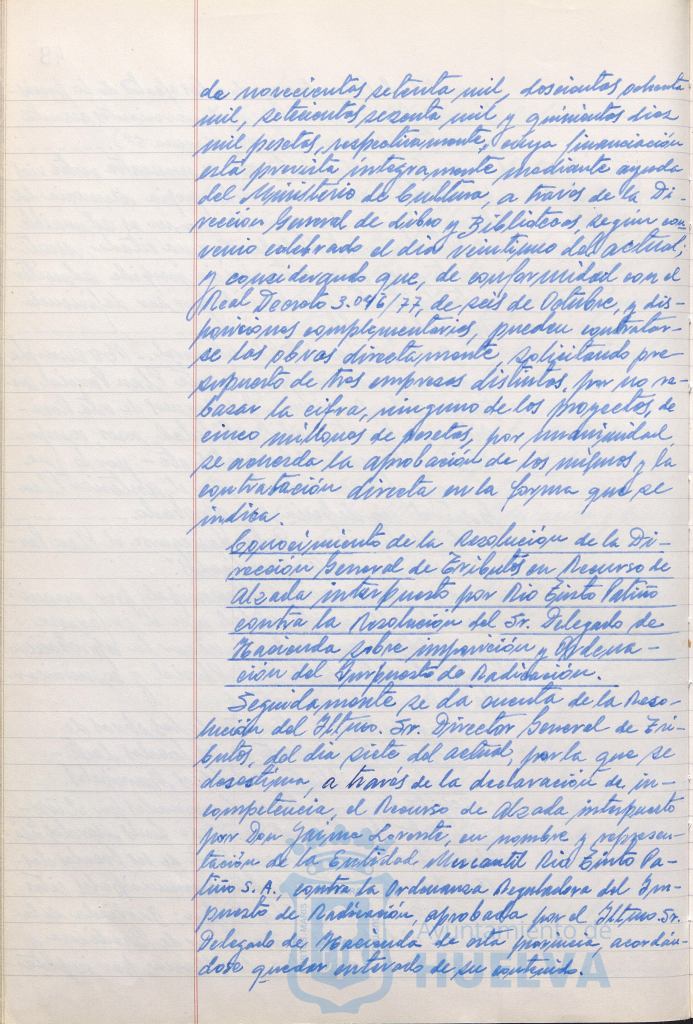 de novecientas setenta mil, doscientas ochenta
mil, setecientas sesenta mil y quinientas diez
mil pesetas, respectivamente, cuya financiación
está prevista íntegramente mediante ayuda
del Ministerio de Cultura, a través de la Di-
rección General de Libro y Bibliotecas, según con-
venio celebrado el día veintiuno del actual;
y considerando que, de conformidad con el
Real Decreto 3.046/77, de seis de Octubre, y dis-
posiciones complementarias, pueden contratar-
se las obras directamente, solicitando pre
supuesto de tres empresas distintas, por no re-
basar la cifra, ninguno de los proyectos, de
cinco millones de pesetas, por unanimidad,
se acuerda la aprobación de los mismos y la
contratación directa en la forma que se
indica.
Conocimiento de la Resolución de la Di-
rección General de Tributos en Recurso de
Alzada interpuesto por Rio Tinto Patiño
contra la Resolución del Sr. Delegado de
Hacienda sobre imposición y Ordena-
ción del Impuesto de Radicación.
Seguidamente se da cuenta de la Reso-
lución del Iltmo. Sr. Director General de Tri-
butos, del día siete del actual, por la que se
desestima, a través de la declaración de in-
competencia, el Recurso de Alzada interpuesto
por Don Jaime Lorente, en nombre y represen-
tación de la Entidad Mercantil Rio Tinto Pa-
tiño S.A., contra la Ordenanza Reguladora del Im-
puesto de Radicación, aprobada por el Iltmo. Sr.
Delegado de Hacienda de esta provincia, acordán-
dose quedar enterado de su contenido.
Ayuntamiento de
HUELVA